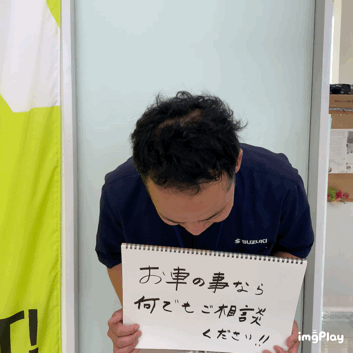 SUZUKI
お車の事なら
何でもご相談
ください!!
T!
imgPlay